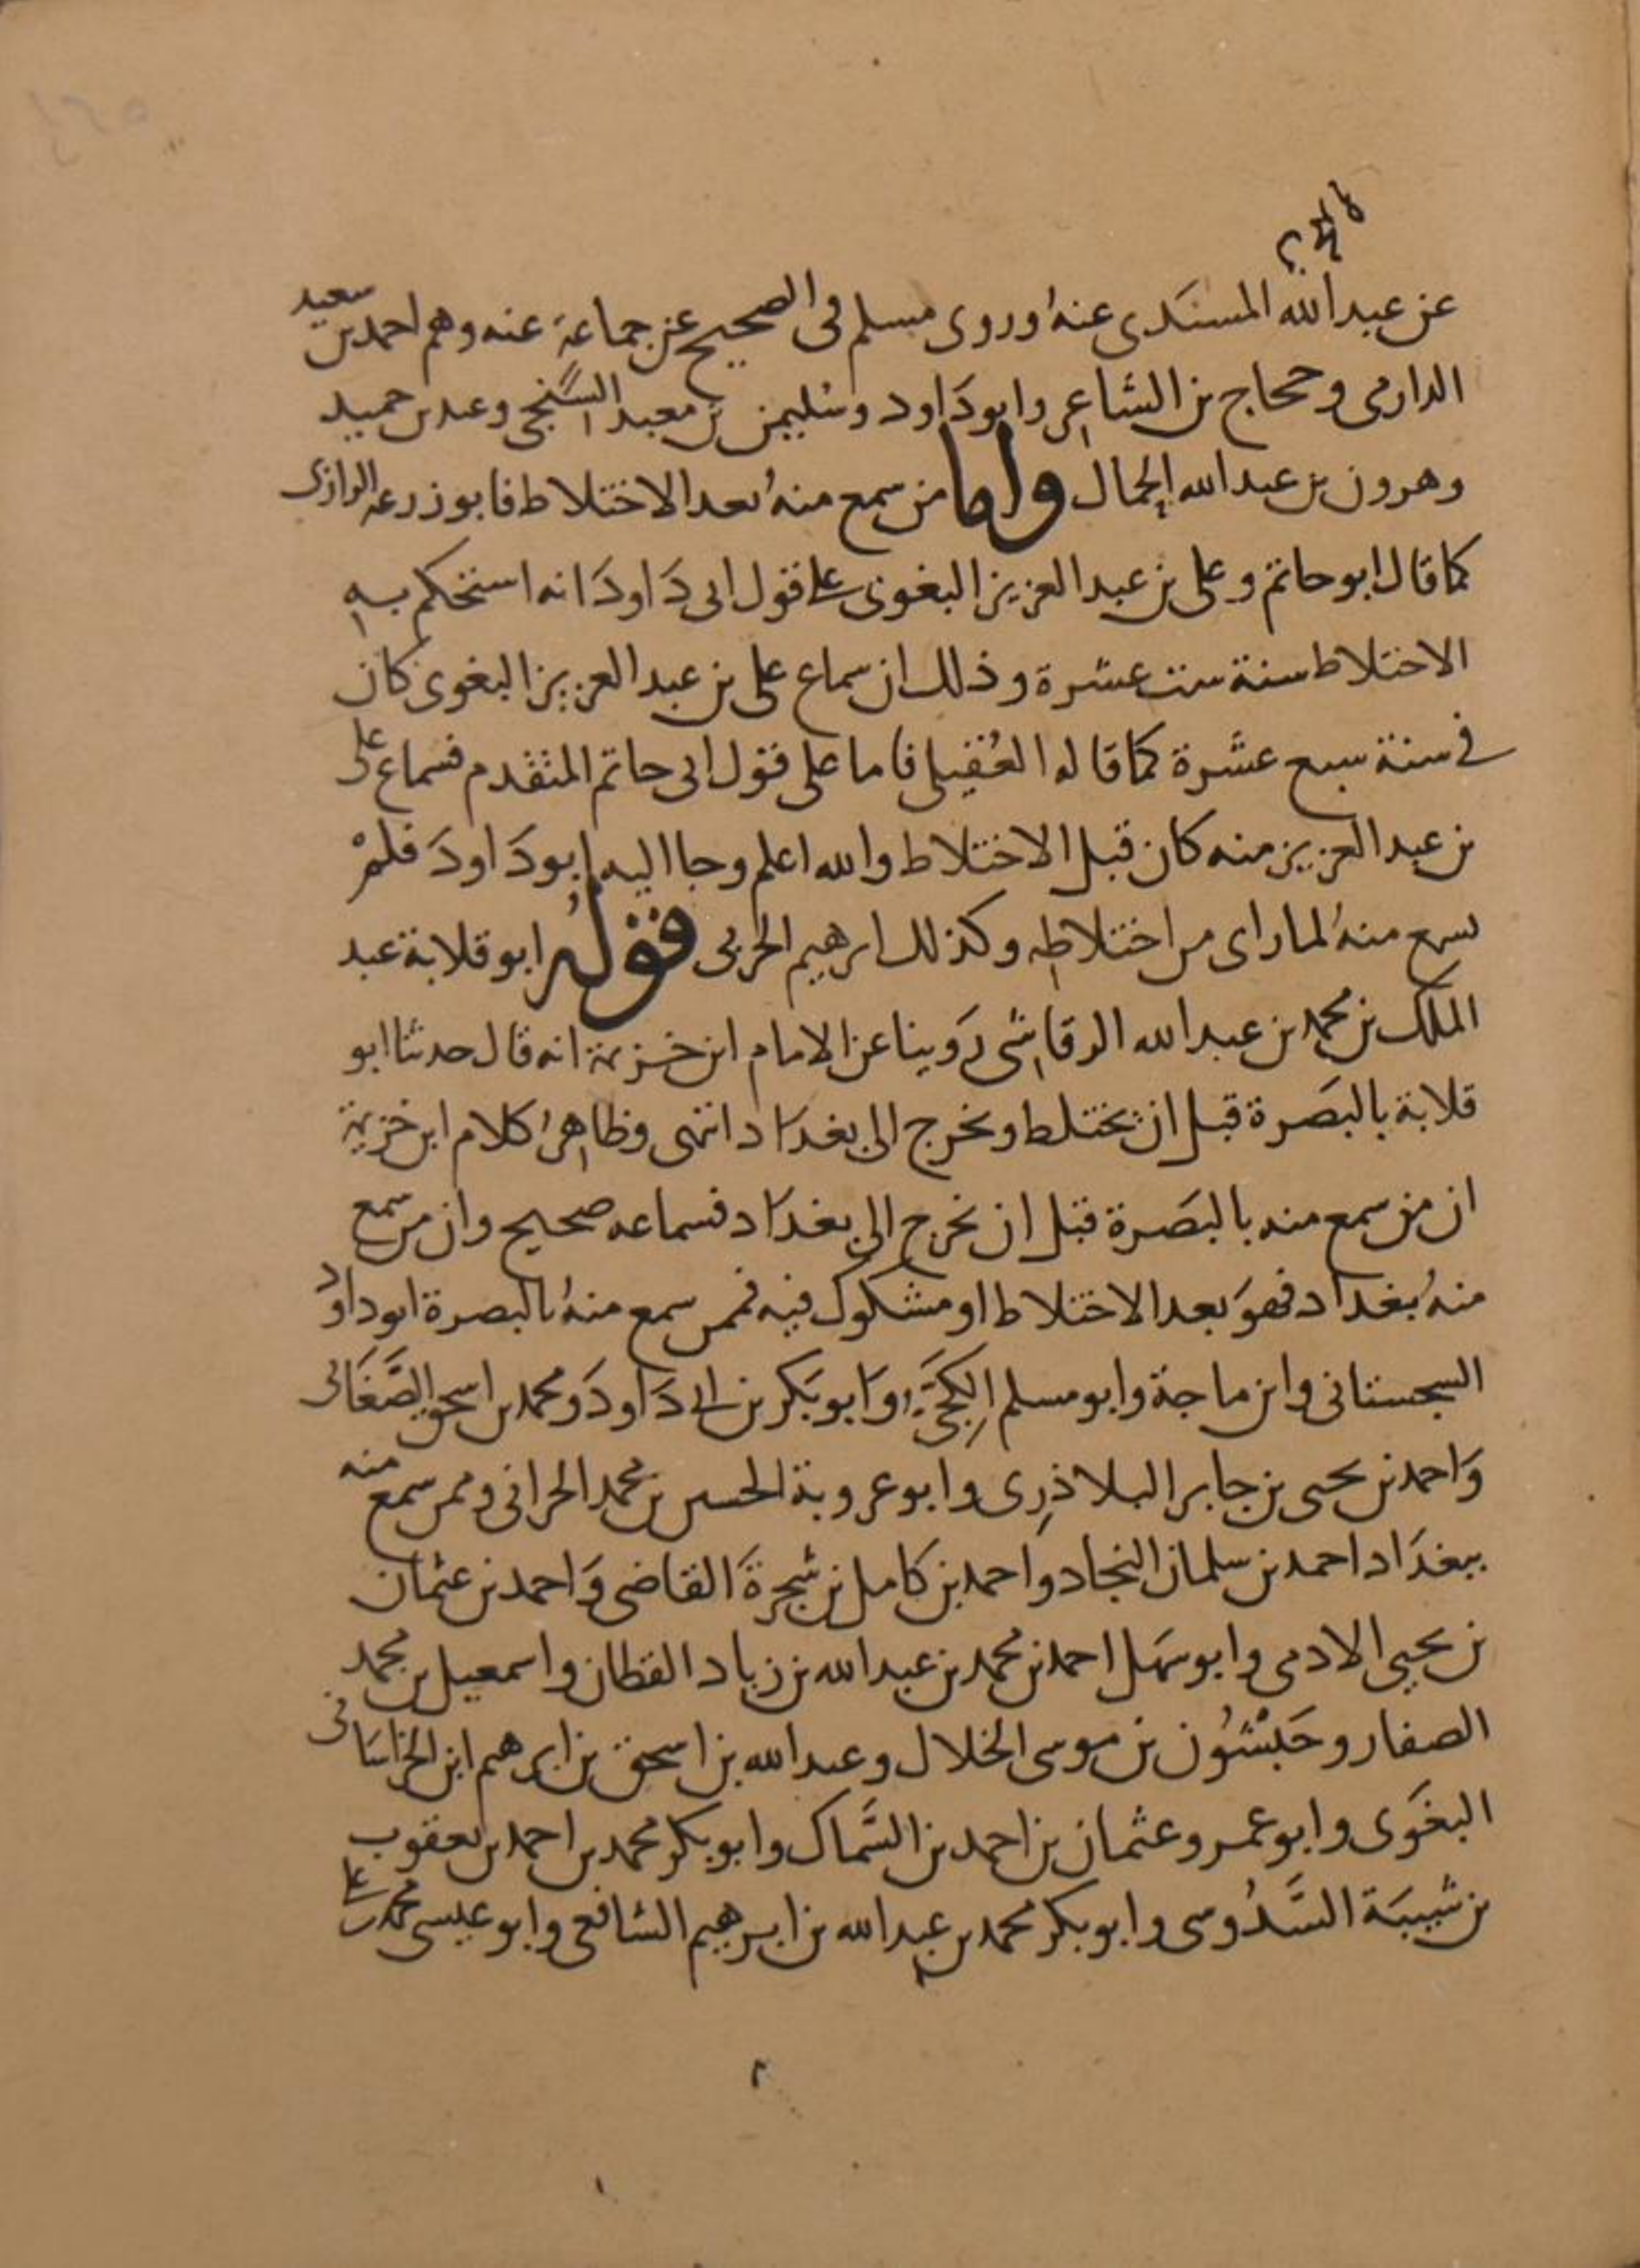 عن عبد الله المسندى عنه وروى مسلم فى الصحيح عن جماعة عنه وهم احمد بن سعيد
الدارمى وحجاج بن الشاعر وابو دَاود وسُليمن بن معبد السِّنجى وعبد بن حميد
وهرون بن عبد الله الحمال واما من سمع منهُ بعد الاختلاط فابو زرعه الرازى
كما قال ابو حاتم وعلى بن عبد العزيز البغوى على قول ابى دَاودَ انه استحكم به
الاختلاط سنة ست عشرة وذلك ان سماع على بن عبد العزيز البغوى كان
فى سنة سبع عشَرة كما قاله العُقيلى فاما على قول ابى حاتم المتقدم فسماع على
بن عبد العزيز منه كان قبل الاختلاط والله اعلم وجا اليه ابو دَاودَ فلمْ
يسمع منهُ لما راى من اختلاطه وكذلك ابرهيم الحربى قوله ابو قلابة عبد
الملك بن محمد بن عبد الله الرقاشى رَوينا عن الامام ابن خزيمة انه قال حدثنا ابو
قلابة بالبَصرة قبل ان يختلط ويخرج الى بغدَاد انتهى وظاهرُ كلام ابن خزيمة
ان من سمع منه بالبَصرة قبل ان يخرج الى بغدَاد فسماعه صحيح وان من سمع
منهُ بغداد فهوَ بعد الاختلاط او مشكوك فيه فمن سمع منهُ بالبصرة ابو داود
السجستانى وابن ماجة وابو مسلم الكجِّىّ وَابو بَكر بن ابى دَاودَ ومحمد بن اسحق الصَّغَانى
وَاحمد بن يحيى بن جابر البلاذرِى وابو عروبة الحسين بن محمد الحرانى وممن سمع منه
ببغدَاد احمد بن سلمان النجاد وَاحمد بن كامل بن شجرة القاضى وَاحمد بن عثمان
بن يحيى الادمى وابو سَهل احمد بن محمد بن عبد الله بن زياد القطان واسمعيل بن محمد
الصفار وحَبْشُون بن موسى الخلال وعبد الله بن اسحق بن ابرهيم ابن الخراسَانى
البغَوى وابو عمرو عثمان بن احمد بن السَّماك وابو بكر محمد بن احمد بن يعقوب
بن شيبَة السَّدُوسى وابو بكر محمد بن عبد الله بن ابرهيم الشافعى وابو عيسى محمد بن على